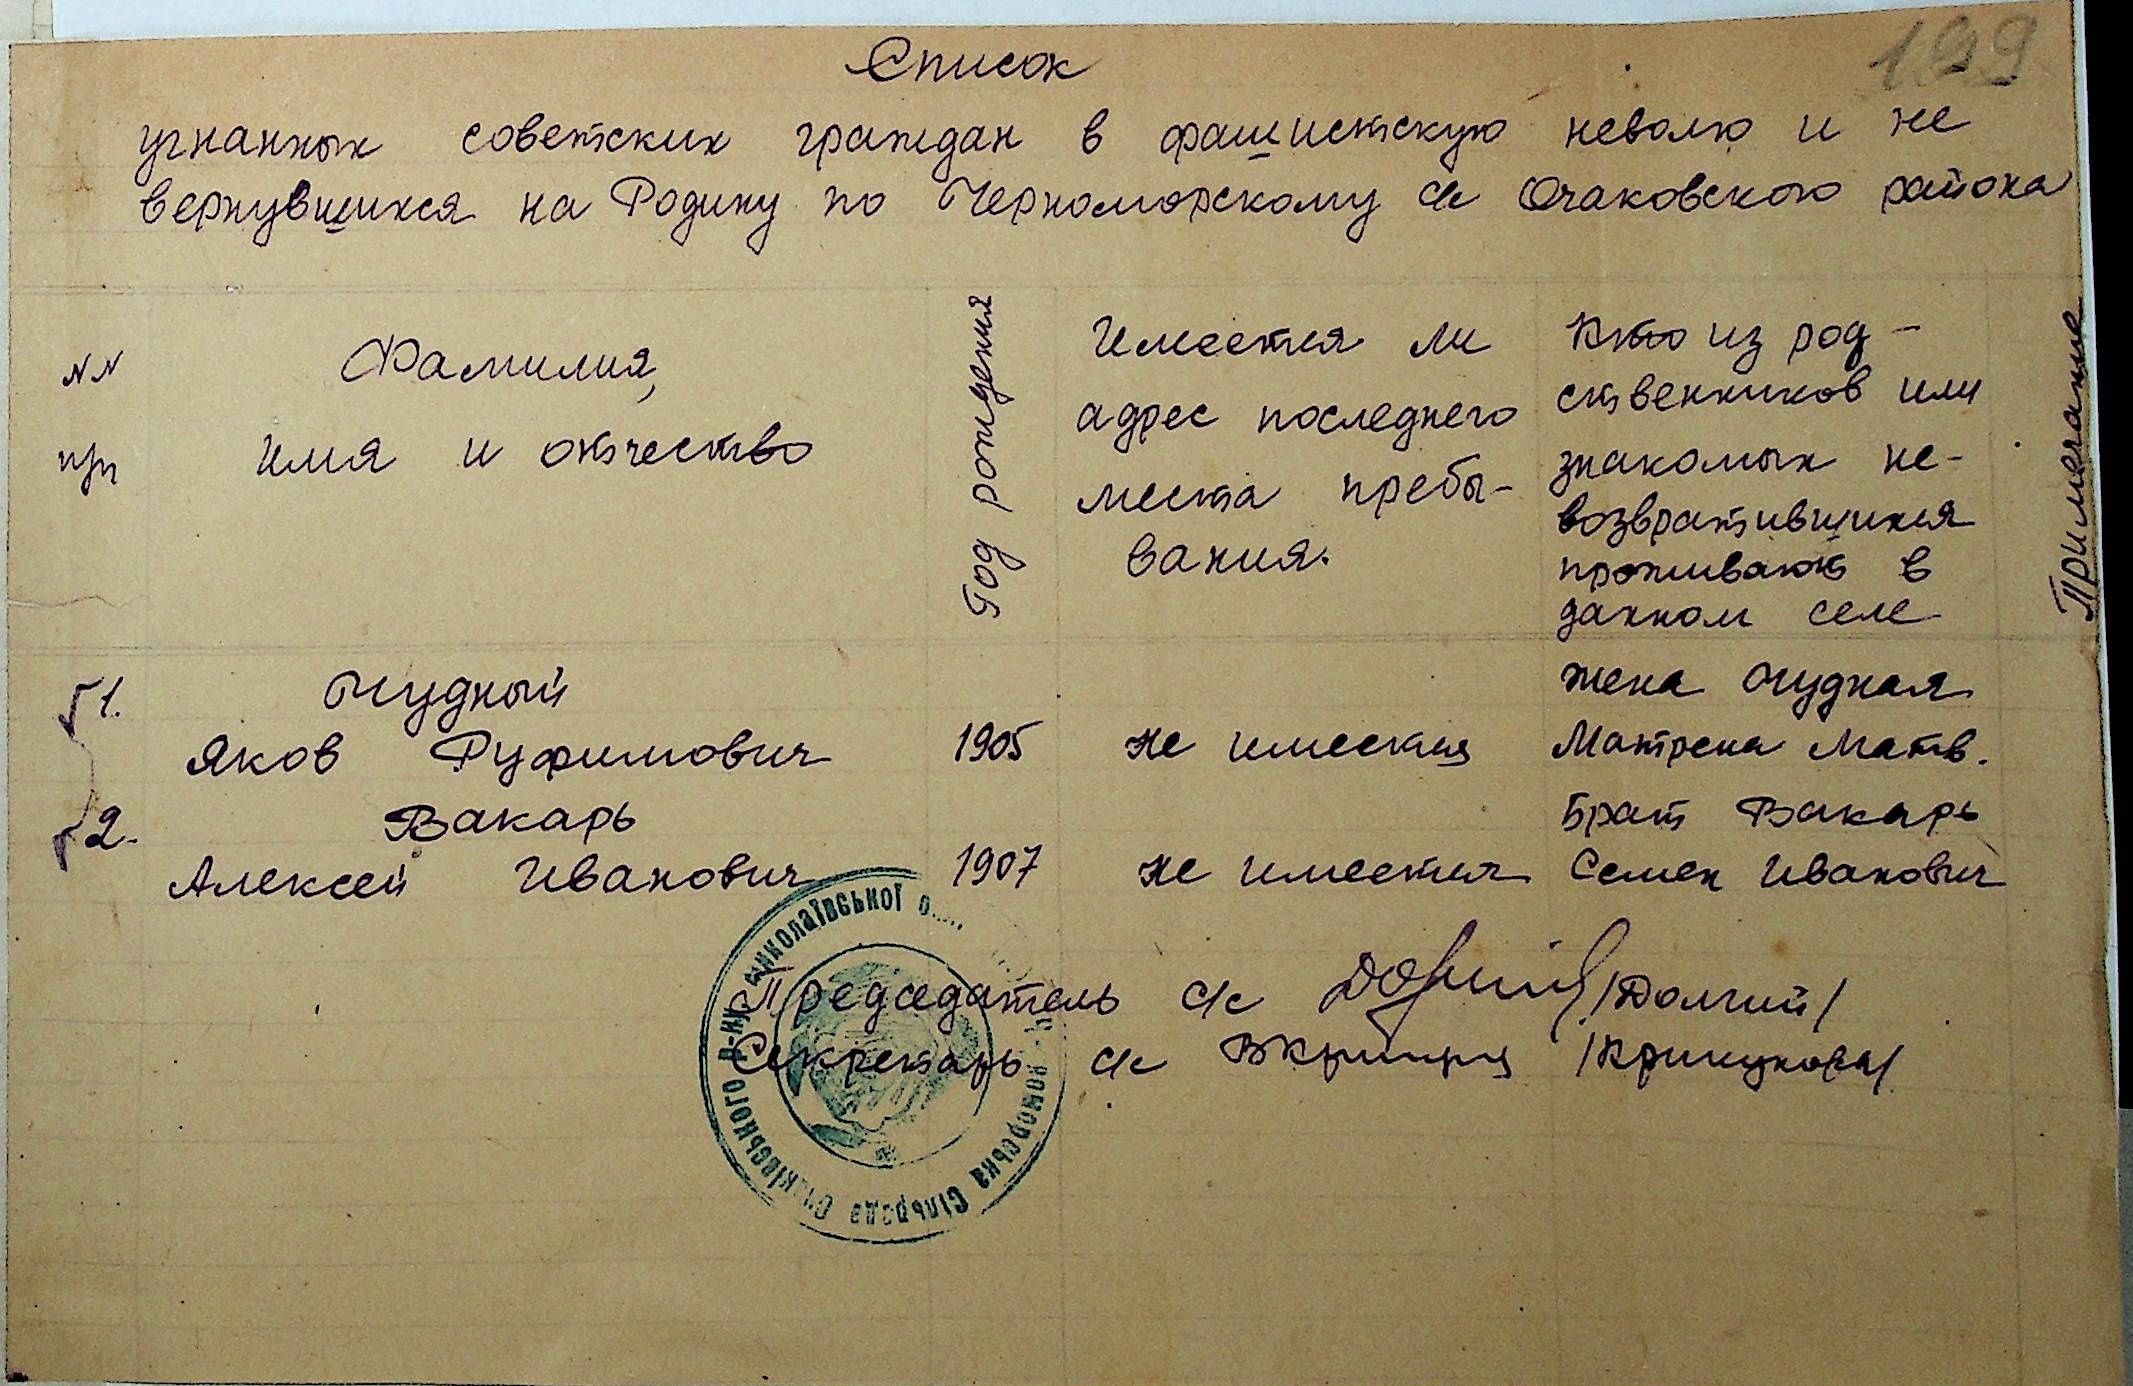 199
Список
угнанных советских граждан в фашистскую неволю и не
вернувшихся на Родину по Черноморскому с/с Очаковского района
NN
п/п
Фамилия,
имя и отчество
Год рождения
Имеется ли
адрес последнего
места пребы-
вания.
Кто из род-
ственников или
знакомых не-
возвратившихся
проживают в
данном селе
Примечание
1. Чудный жена Чудная
Яков Руфимович 1905 не имеется Матрена Матв.
2. Вакарь Брат Вакарь
Алексей Иванович 1907 не имеется Семен Иванович
Председатель с/с /Долгий/
Секретарь с/с
номорська Сільрада Очаківського р-ну Миколаївської о